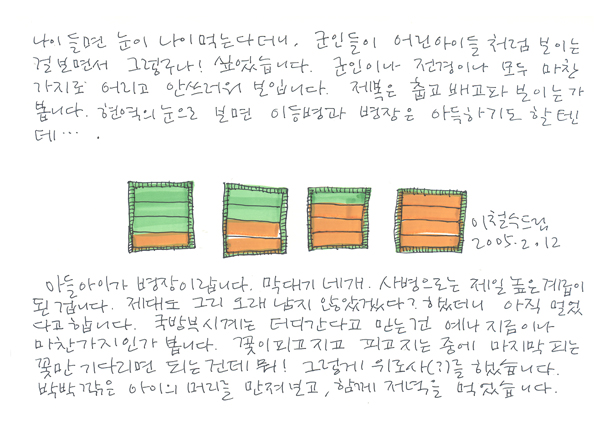 나이 들면 눈이 나이 먹는다더니, 군인들이 어린아이들처럼 보이는
걸 보면서 그렇구나! 싶었습니다. 군인이나 전경이나 모두 마찬
가지로 어리고 안쓰러워 보입니다. 제복은 춥고 배고파 보이는가
봅니다. 현역의 눈으로 보면 이등병과 병장은 아득하기도 할 텐
데… .
이철수드림
2005.2.012
아들아이가 병장이랍니다. 막대기 네개. 사병으로는 제일 높은 계급이
된 겁니다. 제대도 그리 오래 남지 않았겠다? 했더니 아직 멀었
다고 합니다. 국방부 시계는 더디간다고 믿는건 예나 지금이나
마찬가지인가 봅니다. 꽃이 피고 지고 피고 지는 중에 마지막 피는
꽃만 기다리면 되는건데 뭐! 그렇게 위로사(?)를 했습니다.
박박 깎은 아이의 머리를 만져보고, 함께 저녁을 먹었습니다.